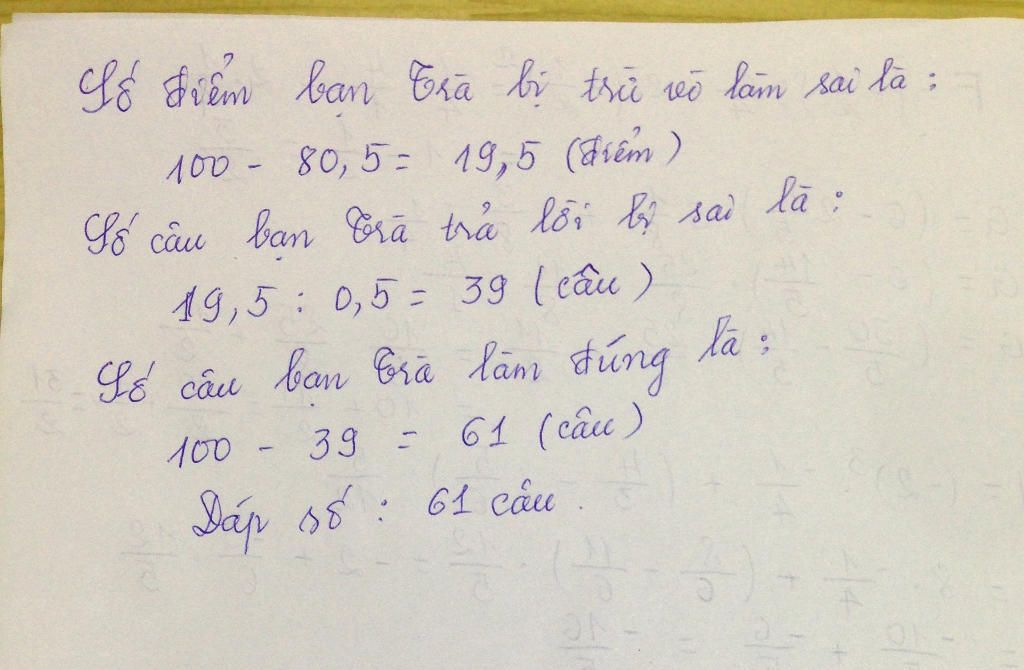 Số điểm bạn Trà bị trừ vì làm sai là :
100 - 80,5 = 19,5 (điểm)
Số câu bạn Trà trả lời bị sai là :
19,5 : 0,5 = 39 (câu)
Số câu bạn Trà làm đúng là :
100 - 39 = 61 (câu)
Đáp số : 61 câu.